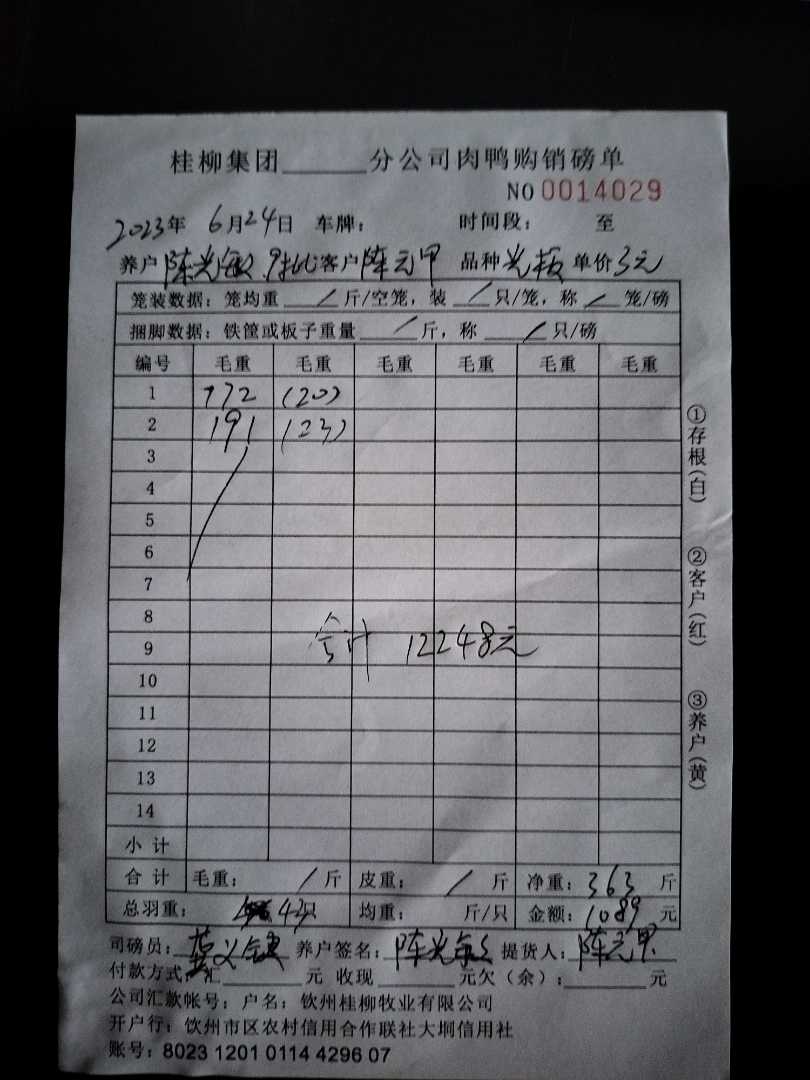 桂柳集团______分公司肉鸭购销磅单
NO 0014029
2023年 6月24日 车牌： 时间段： 至
养户 陈光敏 9批 客户 陈元甲 品种 光板 单价 3元
笼装数据：笼均重 / 斤/空笼，装 / 只/笼，称 / 笼/磅
捆脚数据：铁筐或板子重量 / 斤，称 / 只/磅
编号 毛重 毛重 毛重 毛重 毛重 毛重
1 172 (20)
2 191 (23)
3
4
5
6
7
8
9
合计 12248元
10
11
12
13
14
小计
合计 毛重： / 斤 皮重： / 斤 净重：363 斤
总羽重： 43只 均重： 斤/只 金额：1089 元
司磅员： 养户签名：陈光敏 提货人：陈元甲
付款方式：汇______元 收现______元欠（余）：______元
公司汇款帐号：户名：钦州桂柳牧业有限公司
开户行：钦州市区农村信用合作联社大垌信用社
账号：8023 1201 0114 4296 07
①存根(白) ②客户(红) ③养户(黄)